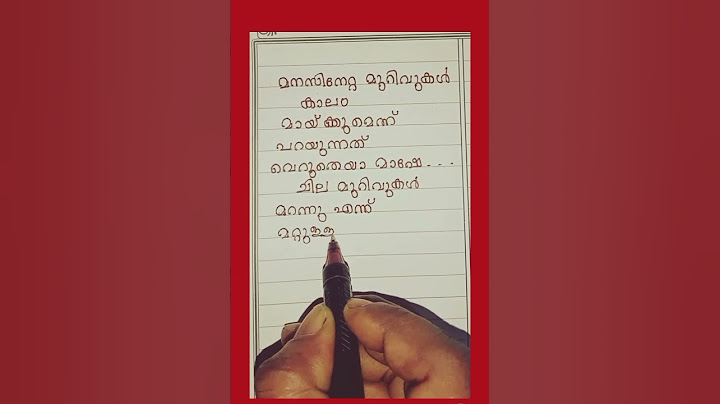 മനസിനേറ്റ മുറിവുകൾ
കാലം
മായ്ക്കുമെന്ന്
പറയുന്നത്
വെറുതെയാ മാഷേ...
ചില മുറിവുകൾ
മറന്നു എന്ന്